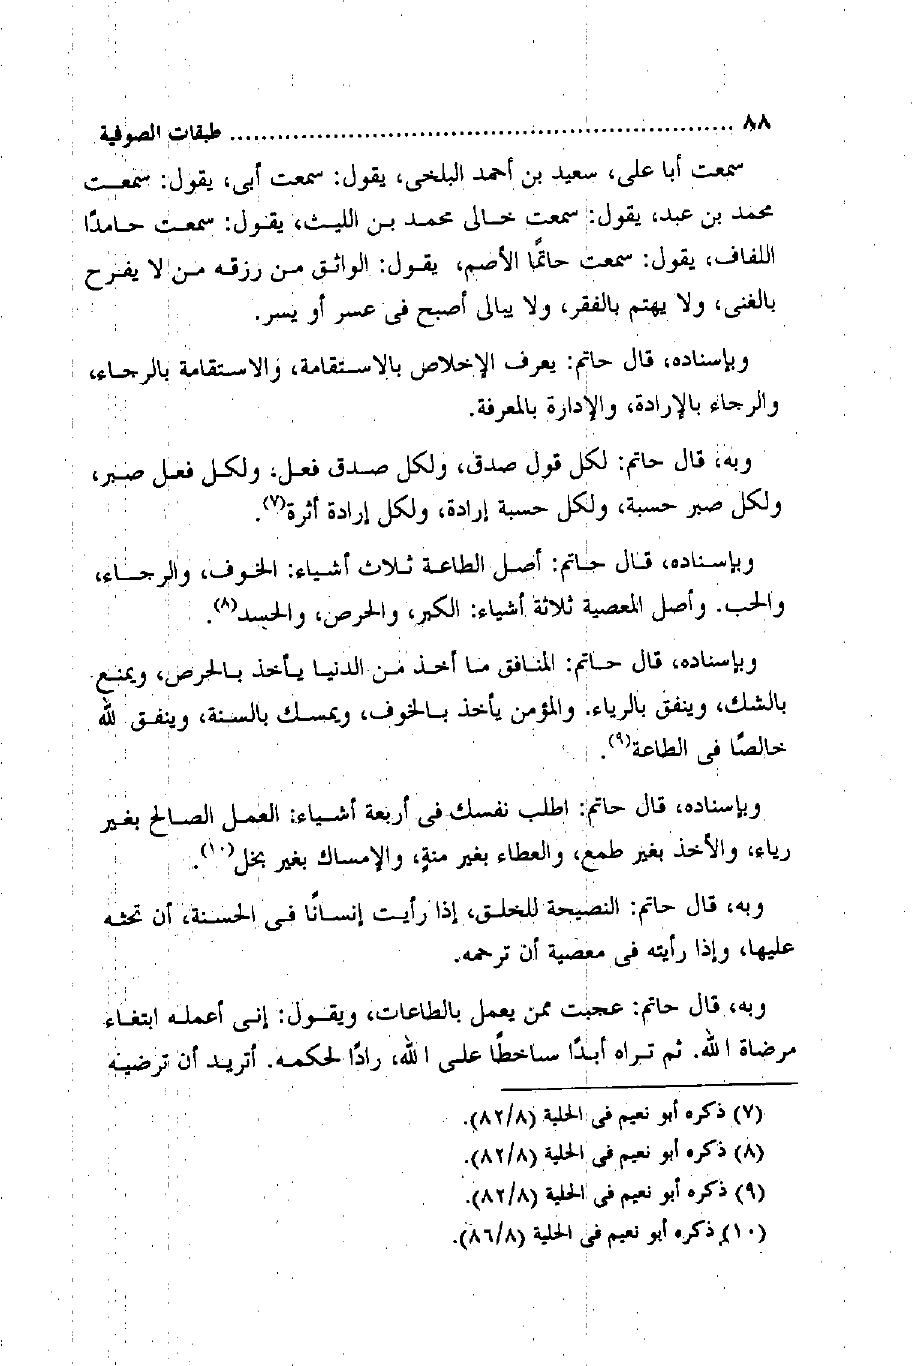 ٨٨ ........................................................ طبقات الصوفية
سمعت أبا على، سعيد بن أحمد البلخى، يقول: سمعت أبى، يقول: سمعت
محمد بن عبد، يقول: سمعت خالى محمد بن الليث، يقول: سمعت حامدًا
اللفاف، يقول: سمعت حاتمًا الأصم، يقول: الواثق من رزقه من لا يفرح
بالغنى، ولا يهتم بالفقر، ولا يبالى أصبح فى عسر أو يسر.
وبإسناده، قال حاتم: يعرف الإخلاص بالاستقامة، والاستقامة بالرجاء،
والرجاء بالإرادة، والإدارة بالمعرفة.
وبه، قال حاتم: لكل قول صدق، ولكل صدق فعل، ولكل فعل صبر،
ولكل صبر حسبة، ولكل حسبة إرادة، ولكل إرادة أثرة(٧).
وبإسناده، قال حاتم: أصل الطاعة ثلاث أشياء: الخوف، والرجاء،
والحب. وأصل المعصية ثلاثة أشياء: الكبر، والحرص، والحسد(٨).
وبإسناده، قال حاتم: المنافق ما أخذ من الدنيا يأخذ بالحرص، ويمنع
بالشك، وينفق بالرياء. والمؤمن يأخذ بالخوف، ويمسك بالسنة، وينفق لله
خالصًا فى الطاعة(٩).
وبإسناده، قال حاتم: اطلب نفسك فى أربعة أشياء: العمل الصالح بغير
رياء، والأخذ بغير طمع، والعطاء بغير منةٍ، والإمساك بغير بخل(١٠).
وبه، قال حاتم: النصيحة للخلق، إذا رأيت إنسانًا فى الحسنة، أن تحثه
عليها، وإذا رأيته فى معصية أن ترحمه.
وبه، قال حاتم: عجبت ممن يعمل بالطاعات، ويقول: إنى أعمله ابتغاء
مرضاة الله. ثم تراه أبدًا ساخطًا على الله، رادًا لحكمه. أتريد أن ترضيه
(٧) ذكره أبو نعيم فى الحلية (٨٢/٨).
(٨) ذكره أبو نعيم فى الحلية (٨٢/٨).
(٩) ذكره أبو نعيم فى الحلية (٨٢/٨).
(١٠) ذكره أبو نعيم فى الحلية (٨٦/٨).